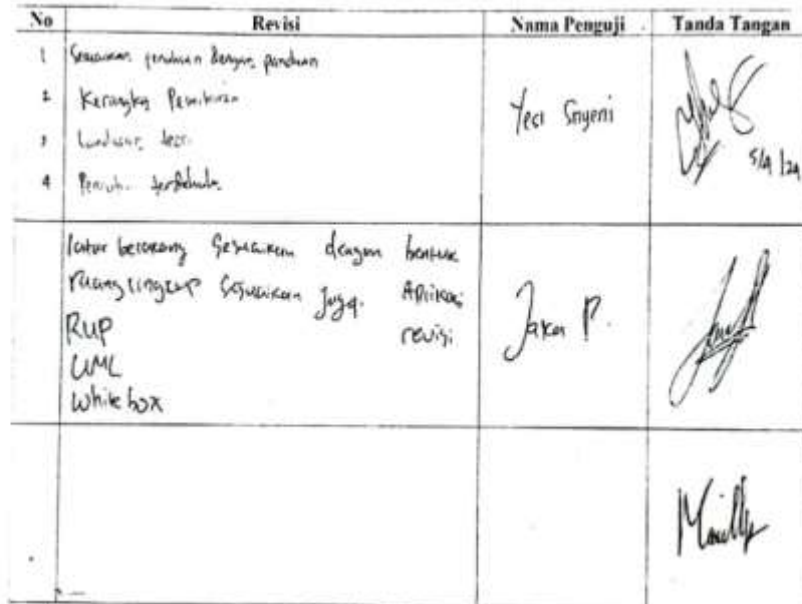 No Revisi Nama Penguji Tanda Tangan
1 Sesuaikan penulisan dengan panduan
2 Kerangka Pemikiran
3 Landasan teori
4 terdahulu
Yesi Sriyeni
5/9/24
latar belakang Sesuaikan dengan bentuk
ruang lingkup Sesuaikan Juga. Aplikasi
RUP revisi
UML
White box
Jaka P.